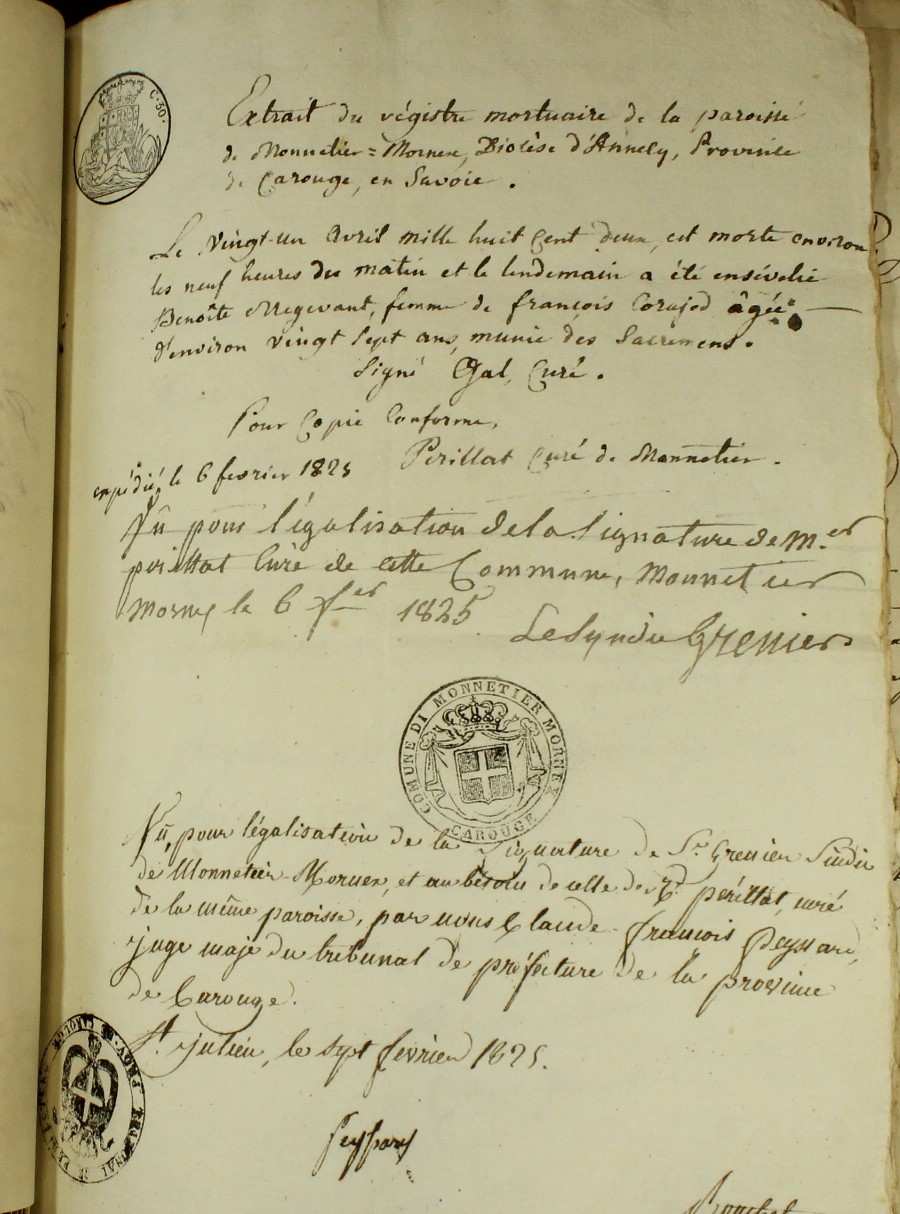 C. 50.
Extrait du régistre mortuaire de la paroisse
de Monnetier=Mornex, Diocèse d'Annecy, Province
de Carouge, en Savoie.
Le vingt-un avril mille huit cent deux, est morte environ
les neuf heures du matin et le lendemain a été ensévelie
Benoîte femme de françois âgée
d'environ vingt sept ans, munie des Sacremens.
Signé Curé.
Pour Copie Conforme,
Perillat Curé de Monnetier.
expédié, le 6 fevrier 1825
Vû pour légalisation de la Signature de M.er
perillat Curé de cette Commune, Monnetier
Mornex le 6 f.er 1825
Le Syndic Grenier
COMUNE DI MONNETIER MORNEX
CAROUGE
Vû, pour légalisation de la Signature de Sr. Grenier Sindic
de Monnetier-Mornex, et au besoin de celle de Rd. périllat, curé
de la même paroisse, par nous Claude-françois Peyssard,
juge maje du tribunal de préfecture de la province
de Carouge.
St. julien, le sept février 1825.
Peyssard